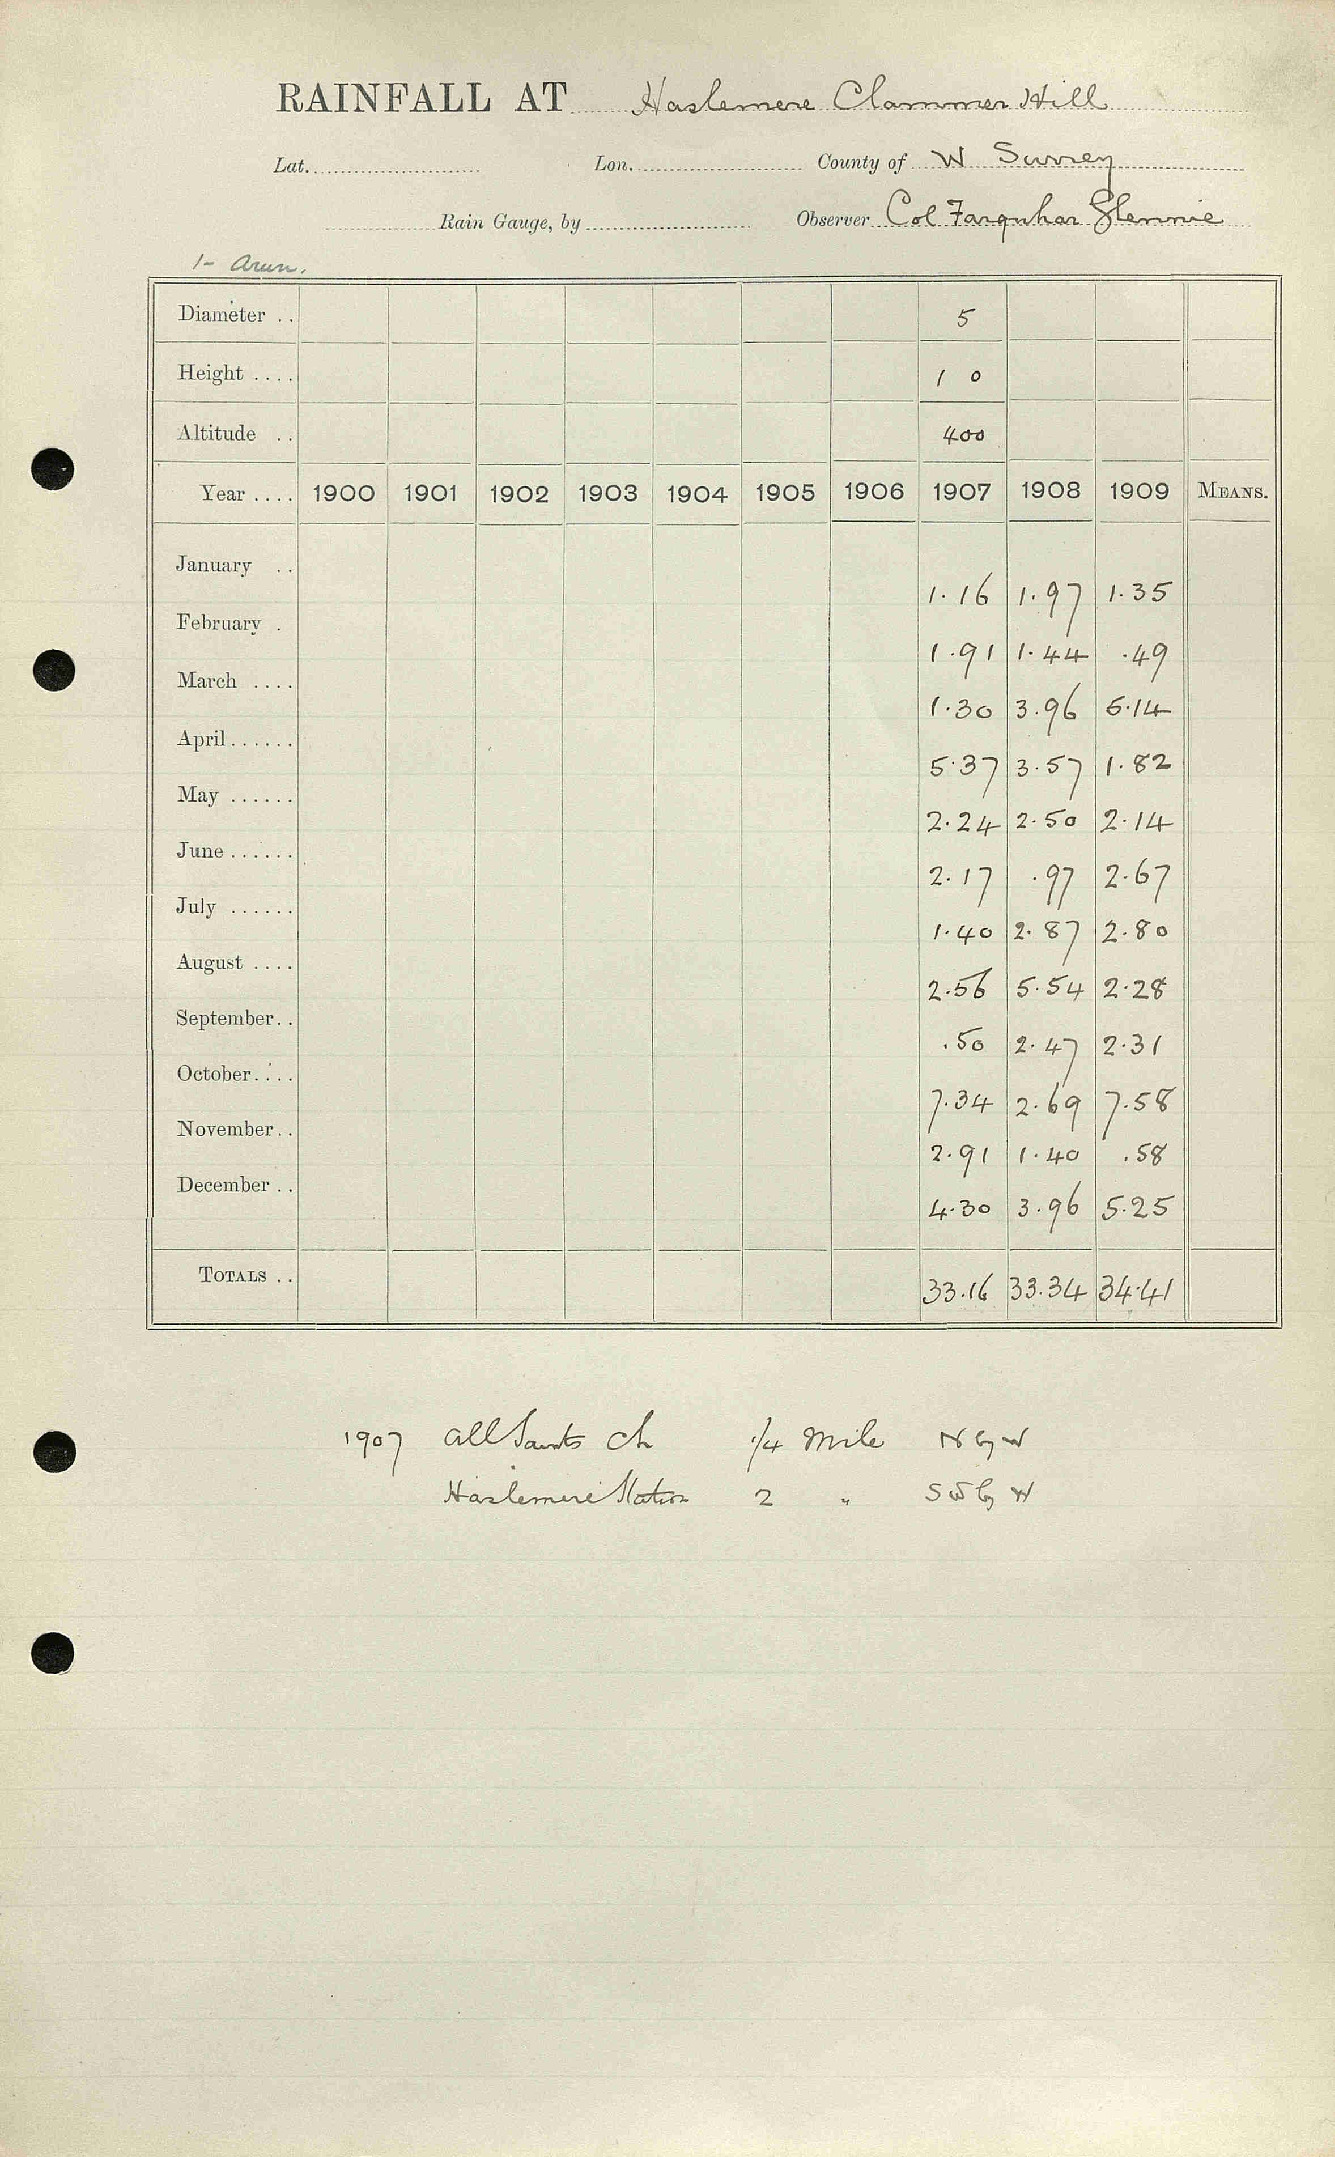 RAINFALL AT Haslemere Clammer Hill
Lat. Lon. County of W Surrey
Rain Gauge, by Observer Col Farquhar Glennie
1- Arun.
Diameter .. 5
Height .... 1 0
Altitude .. 400
Year .... 1900 1901 1902 1903 1904 1905 1906 1907 1908 1909 MEANS.
January .. 1.16 1.97 1.35
February . 1.91 1.44 .49
March .... 1.30 3.96 5.14
April ...... 5.37 3.57 1.82
May ...... 2.24 2.50 2.14
June ...... 2.17 .97 2.67
July ...... 1.40 2.87 2.80
August .... 2.56 5.54 2.28
September.. .50 2.47 2.31
October.... 7.34 2.69 7.58
November.. 2.91 1.40 .58
December .. 4.30 3.96 5.25
TOTALS .. 33.16 33.34 34.41
1907 All Saints Ch 1/4 Mile N by W
Haslemere Station 2 " SW by W